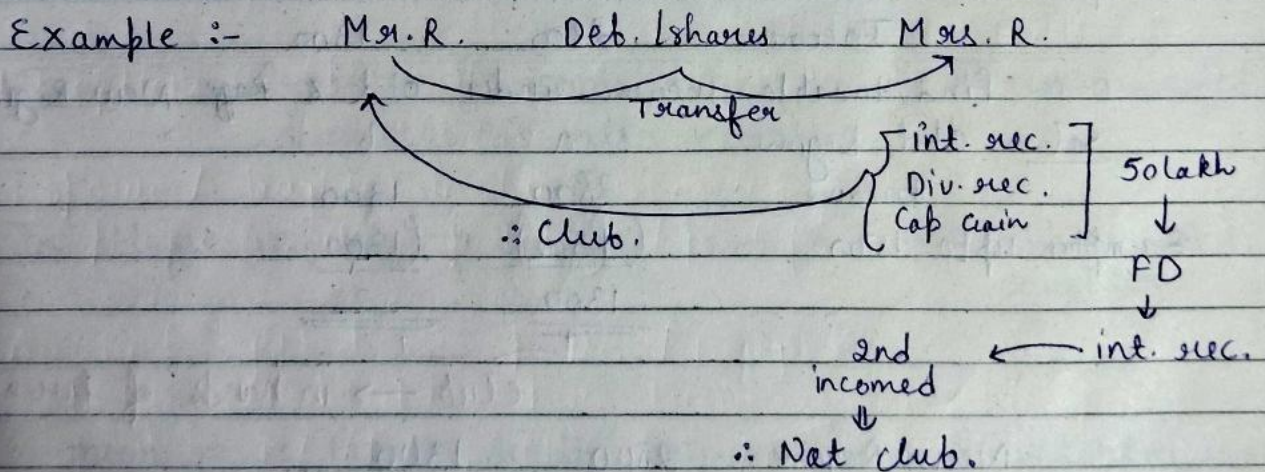 Example :- Mr. R. Deb. /shares Mrs. R.
Transfer
int. rec.
Div. rec.
Cap Gain
50 lakh
∴ Club.
FD
int. rec.
2nd
incomed
∴ Not club.